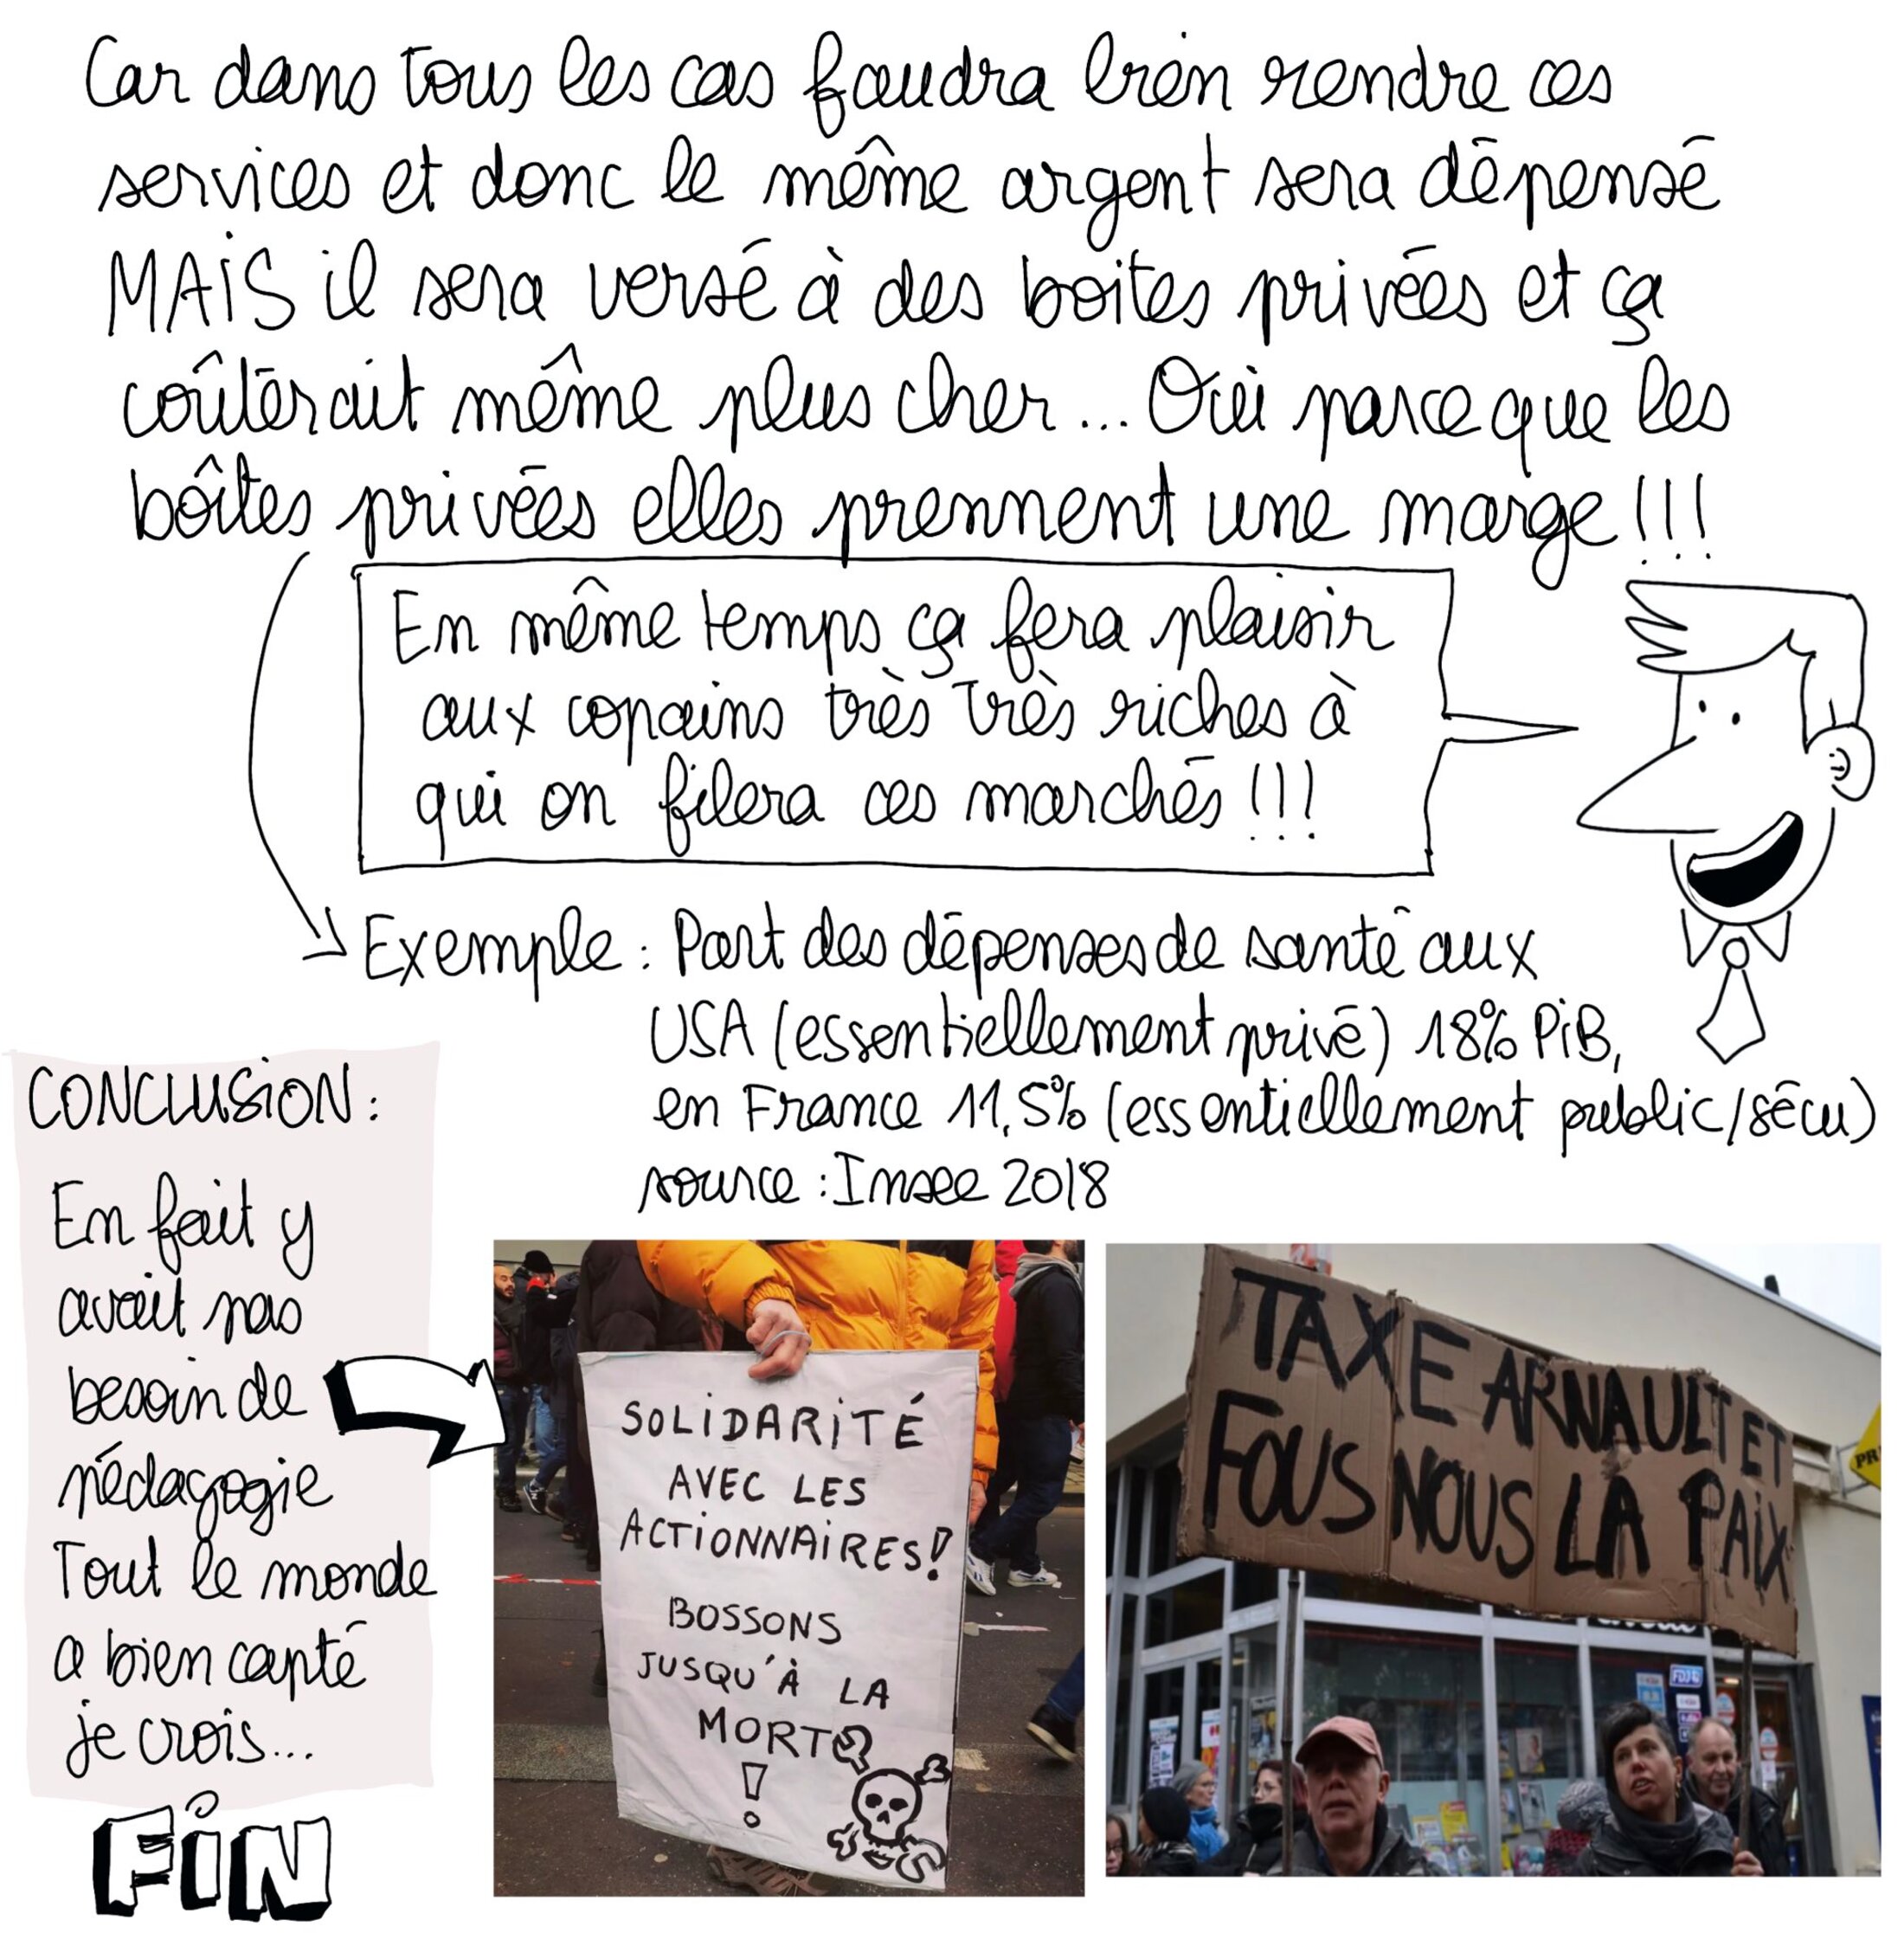 Car dans tous les cas faudra bien rendre ces
services et donc le même argent sera dépensé
MAIS il sera versé à des boites privées et ça
coûterait même plus cher... Oui parce que les
boîtes privées elles prennent une marge !!!
En même temps ça fera plaisir
aux copains très très riches à
qui on filera ces marchés !!!
Exemple : Part des dépenses de santé aux
USA (essentiellement privé) 18% PiB,
en France 11,5% (essentiellement public/sécu)
source : Insee 2018
CONCLUSION :
En fait y
avait pas
besoin de
pédagogie
Tout le monde
a bien capté
je crois...
FIN
SOLIDARITÉ
AVEC LES
ACTIONNAIRES !
BOSSONS
JUSQU'À LA
MORT
!
TAXE ARNAULT ET
FOUS NOUS LA PAIX
PR
FDJ